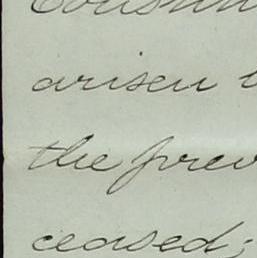 arisen
the prev
ceased;